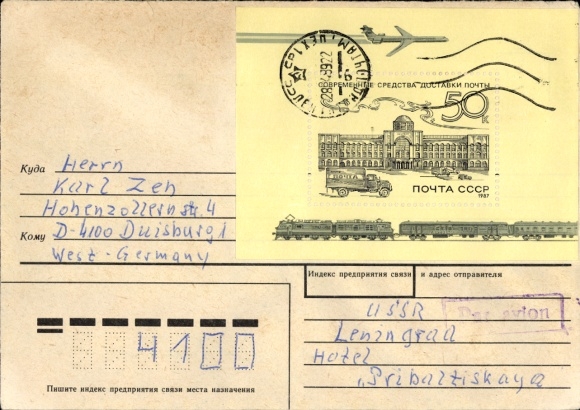 СОВРЕМЕННЫЕ СРЕДСТВА ДОСТАВКИ ПОЧТЫ
50 к
ПОЧТА
ПОЧТА СССР
1987
Куда Herrn
Karl Zeh
Hohenzollernstr. 4
Кому D-4100 Duisburg 1
West-Germany
Индекс предприятия связи и адрес отправителя
Par avion
USSR
Leningrad
Hotel
"Pribaltiskaya
4100
Пишите индекс предприятия связи места назначения